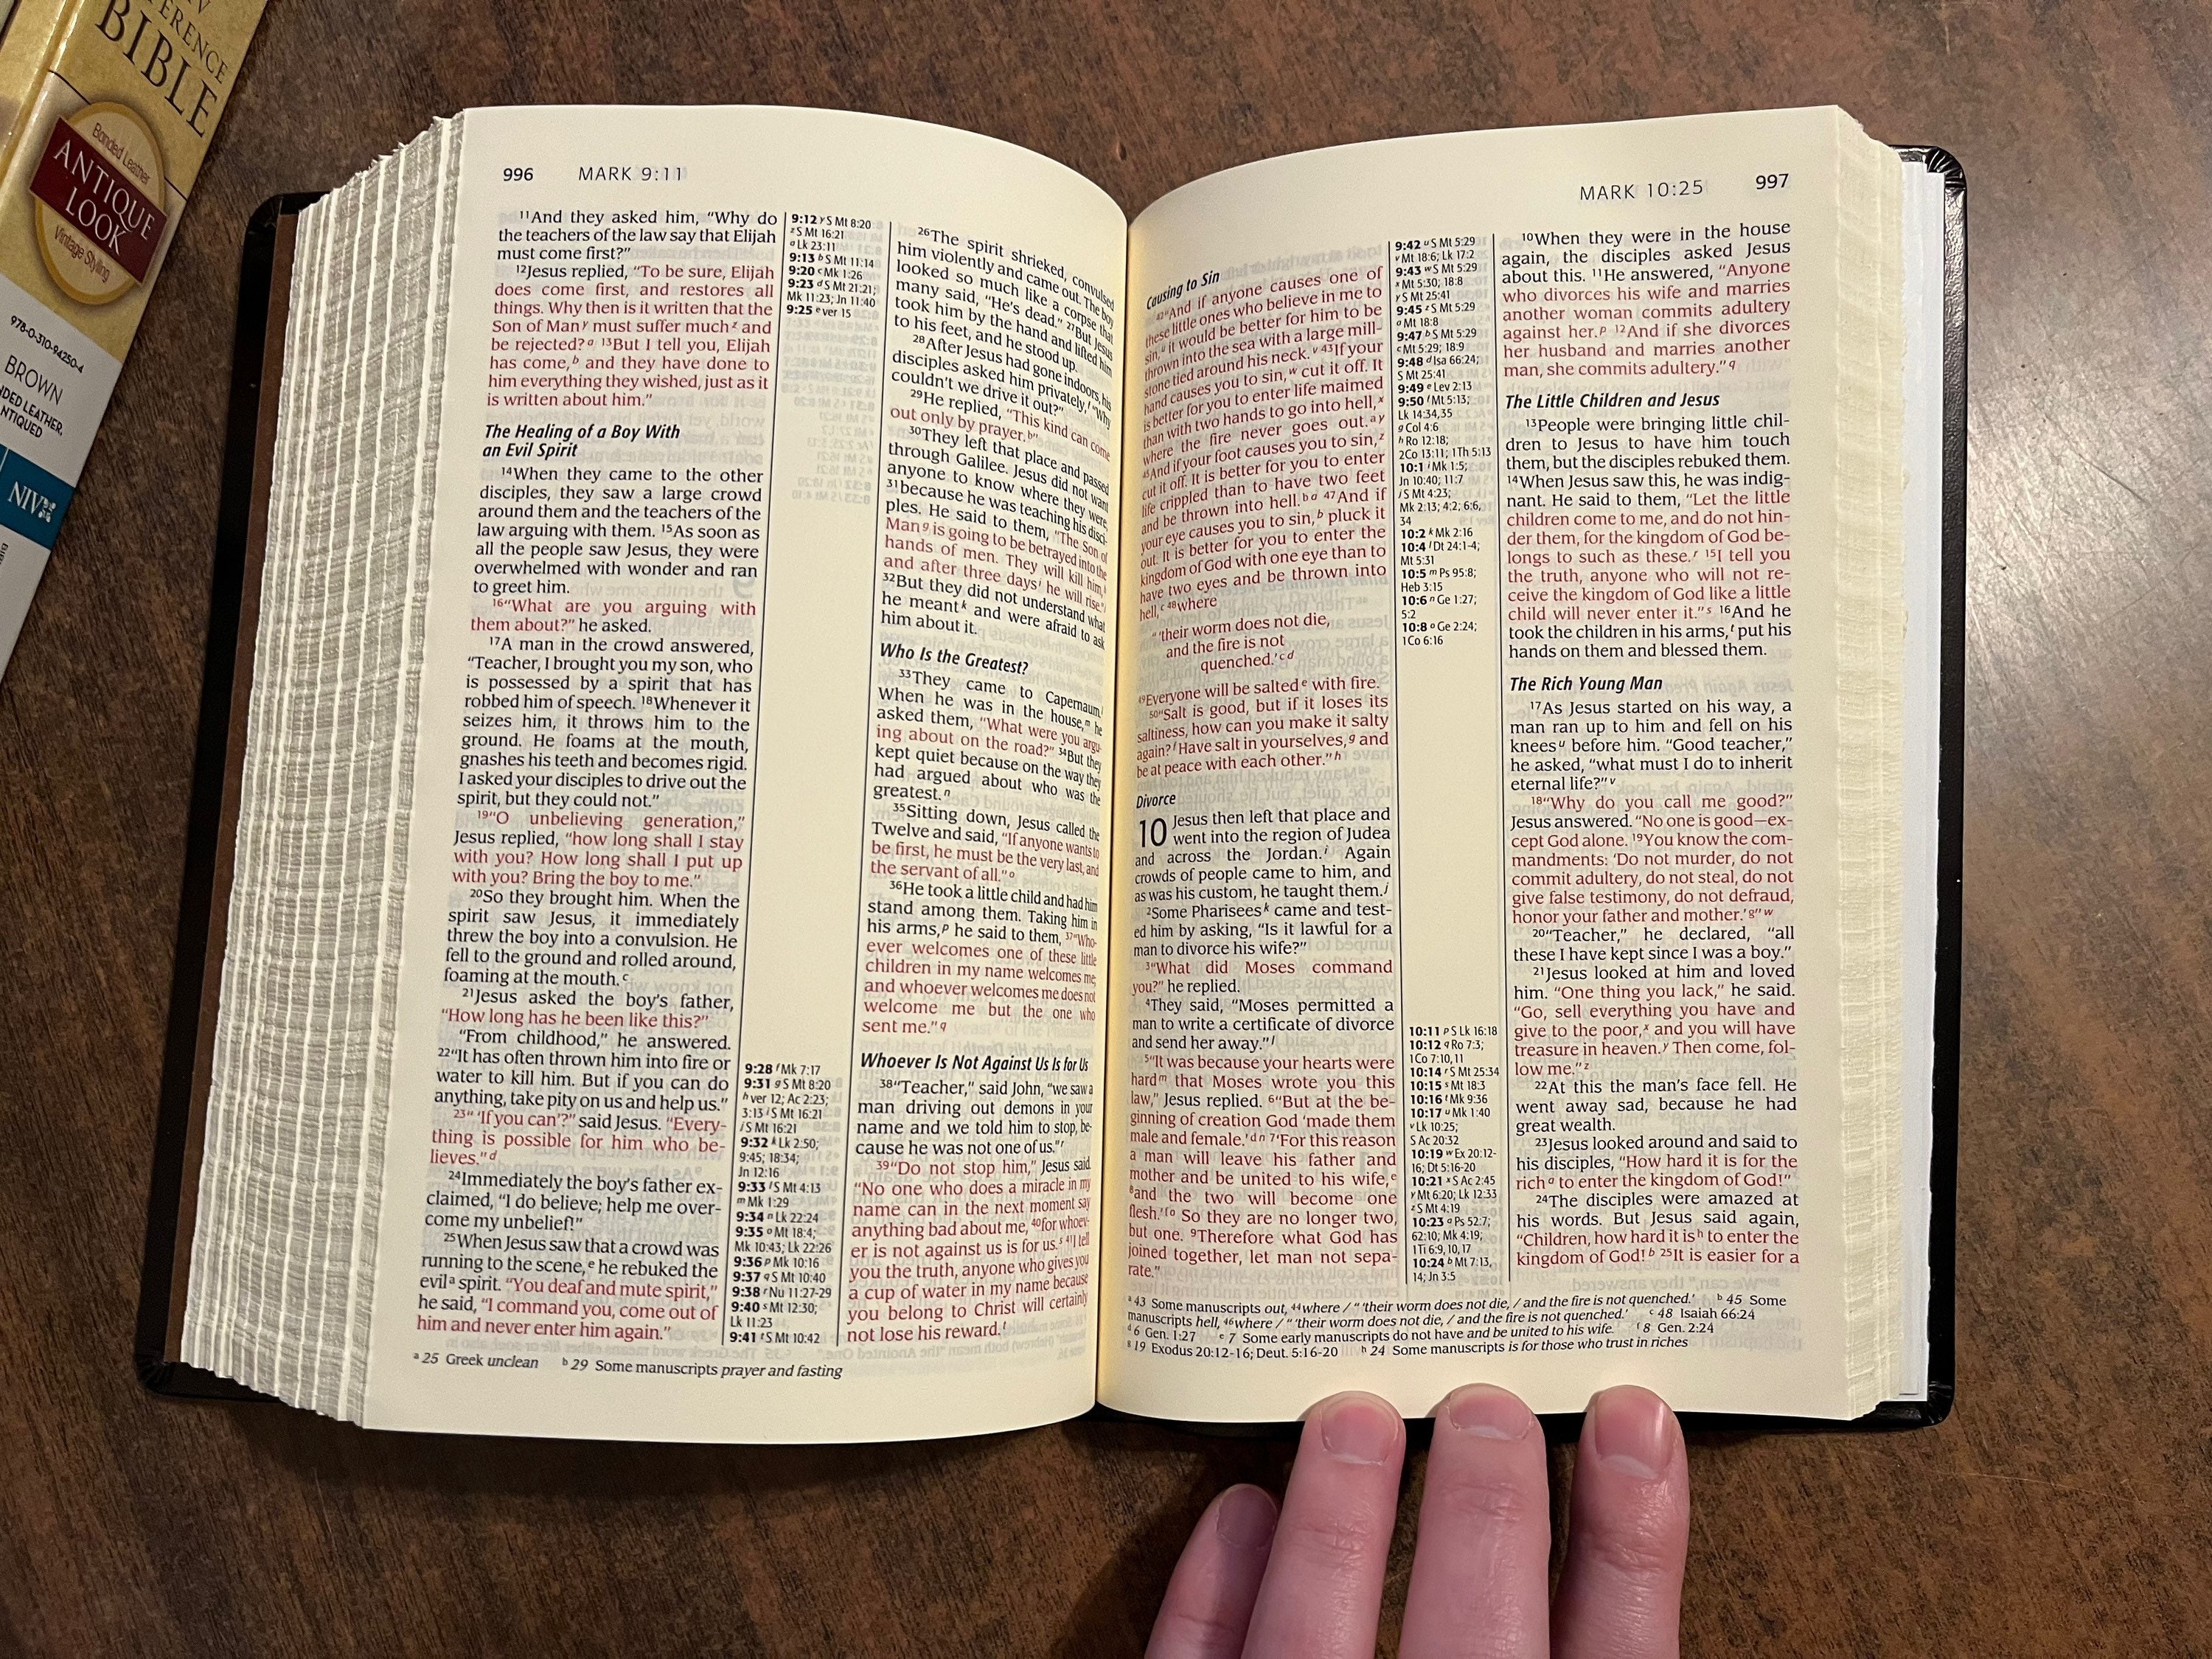 BIBLE
Bonded Leather
ANTIQUE
LOOK
Vintage Styling
978-0-310-94250-4
BROWN
NIV
996 MARK 9:11
¹¹And they asked him, “Why do
the teachers of the law say that Elijah
must come first?”
¹²Jesus replied, “To be sure, Elijah
does come first, and restores all
things. Why then is it written that the
Son of Man ʸ must suffer much ᶻ and
be rejected? ᵃ ¹³But I tell you, Elijah
has come, ᵇ and they have done to
him everything they wished, just as it
is written about him.”
The Healing of a Boy With
an Evil Spirit
¹⁴When they came to the other
disciples, they saw a large crowd
around them and the teachers of the
law arguing with them. ¹⁵As soon as
all the people saw Jesus, they were
overwhelmed with wonder and ran
to greet him.
¹⁶“What are you arguing with
them about?” he asked.
¹⁷A man in the crowd answered,
“Teacher, I brought you my son, who
is possessed by a spirit that has
robbed him of speech. ¹⁸Whenever it
seizes him, it throws him to the
ground. He foams at the mouth,
gnashes his teeth and becomes rigid.
I asked your disciples to drive out the
spirit, but they could not.”
¹⁹“O unbelieving generation,”
Jesus replied, “how long shall I stay
with you? How long shall I put up
with you? Bring the boy to me.”
²⁰So they brought him. When the
spirit saw Jesus, it immediately
threw the boy into a convulsion. He
fell to the ground and rolled around,
foaming at the mouth. ᶜ
²¹Jesus asked the boy’s father,
“How long has he been like this?”
“From childhood,” he answered.
²²“It has often thrown him into fire or
water to kill him. But if you can do
anything, take pity on us and help us.”
²³“ ‘If you can’?” said Jesus. “Every-
thing is possible for him who be-
lieves.” ᵈ
²⁴Immediately the boy’s father ex-
claimed, “I do believe; help me over-
come my unbelief!”
²⁵When Jesus saw that a crowd was
running to the scene, ᵉ he rebuked the
evil ᵃ spirit. “You deaf and mute spirit,”
he said, “I command you, come out of
him and never enter him again.”
9:12 ʸ S Mt 8:20
ᶻ S Mt 16:21
ᵃ Lk 23:11
9:13 ᵇ S Mt 11:14
9:20 ᶜ Mk 1:26
9:23 ᵈ S Mt 21:21;
Mk 11:23; Jn 11:40
9:25 ᵉ ver 15
9:28 ᶠ Mk 7:17
9:31 ᵍ S Mt 8:20
ʰ ver 12; Ac 2:23;
3:13 ⁱ S Mt 16:21
ʲ S Mt 16:21
9:32 ᵏ Lk 2:50;
9:45; 18:34;
Jn 12:16
9:33 ˡ S Mt 4:13
ᵐ Mk 1:29
9:34 ⁿ Lk 22:24
9:35 ᵒ Mt 18:4;
Mk 10:43; Lk 22:26
9:36 ᵖ Mk 10:16
9:37 q S Mt 10:40
9:38 ʳ Nu 11:27-29
9:40 ˢ Mt 12:30;
Lk 11:23
9:41 ᵗ S Mt 10:42
²⁶The spirit shrieked, convulsed
him violently and came out. The boy
looked so much like a corpse that
many said, “He’s dead.” ²⁷But Jesus
took him by the hand and lifted him
to his feet, and he stood up.
²⁸After Jesus had gone indoors, his
disciples asked him privately, ᶠ “Why
couldn’t we drive it out?”
²⁹He replied, “This kind can come
out only by prayer. ᵇ”
³⁰They left that place and passed
through Galilee. Jesus did not want
anyone to know where they were,
³¹because he was teaching his disci-
ples. He said to them, “The Son of
Man ᵍ is going to be betrayed into the
hands of men. They will kill him, ʰ
and after three days ⁱ he will rise.” ʲ
³²But they did not understand what
he meant ᵏ and were afraid to ask
him about it.
Who Is the Greatest?
³³They came to Capernaum. ˡ
When he was in the house, ᵐ he
asked them, “What were you argu-
ing about on the road?” ³⁴But they
kept quiet because on the way they
had argued about who was the
greatest. ⁿ
³⁵Sitting down, Jesus called the
Twelve and said, “If anyone wants to
be first, he must be the very last, and
the servant of all.” ᵒ
³⁶He took a little child and had him
stand among them. Taking him in
his arms, ᵖ he said to them, ³⁷“Who-
ever welcomes one of these little
children in my name welcomes me;
and whoever welcomes me does not
welcome me but the one who
sent me.” q
Whoever Is Not Against Us Is for Us
³⁸“Teacher,” said John, “we saw a
man driving out demons in your
name and we told him to stop, be-
cause he was not one of us.” ʳ
³⁹“Do not stop him,” Jesus said.
“No one who does a miracle in my
name can in the next moment say
anything bad about me, ⁴⁰for whoev-
er is not against us is for us. ˢ ⁴¹I tell
you the truth, anyone who gives you
a cup of water in my name because
you belong to Christ will certainly
not lose his reward. ᵗ
ᵃ 25 Greek unclean ᵇ 29 Some manuscripts prayer and fasting
MARK 10:25 997
Causing to Sin
⁴²“And if anyone causes one of
these little ones who believe in me to
sin, ᵘ it would be better for him to be
thrown into the sea with a large mill-
stone tied around his neck. ᵛ ⁴³If your
hand causes you to sin, ʷ cut it off. It
is better for you to enter life maimed
than with two hands to go into hell, ˣ
where the fire never goes out. ᵃ ʸ
⁴⁵And if your foot causes you to sin, ᶻ
cut it off. It is better for you to enter
life crippled than to have two feet
and be thrown into hell. ᵇ ᵃ ⁴⁷And if
your eye causes you to sin, ᵇ pluck it
out. It is better for you to enter the
kingdom of God with one eye than to
have two eyes and be thrown into
hell, ᶜ ⁴⁸where
“ ‘their worm does not die,
and the fire is not
quenched.’ ᶜ ᵈ
⁴⁹Everyone will be salted ᵉ with fire.
⁵⁰“Salt is good, but if it loses its
saltiness, how can you make it salty
again? ᶠ Have salt in yourselves, ᵍ and
be at peace with each other.” ʰ
Divorce
10 Jesus then left that place and
went into the region of Judea
and across the Jordan. ⁱ Again
crowds of people came to him, and
as was his custom, he taught them. ʲ
²Some Pharisees ᵏ came and test-
ed him by asking, “Is it lawful for a
man to divorce his wife?”
³“What did Moses command
you?” he replied.
⁴They said, “Moses permitted a
man to write a certificate of divorce
and send her away.” ˡ
⁵“It was because your hearts were
hard ᵐ that Moses wrote you this
law,” Jesus replied. ⁶“But at the be-
ginning of creation God ‘made them
male and female.’ ᵈ ⁿ ⁷‘For this reason
a man will leave his father and
mother and be united to his wife, ᵉ
⁸and the two will become one
flesh.’ ᶠ ᵒ So they are no longer two,
but one. ⁹Therefore what God has
joined together, let man not sepa-
rate.”
9:42 ᵘ S Mt 5:29
ᵛ Mt 18:6; Lk 17:2
9:43 ʷ S Mt 5:29
ˣ Mt 5:30; 18:8
ʸ S Mt 25:41
9:45 ᶻ S Mt 5:29
ᵃ Mt 18:8
9:47 ᵇ S Mt 5:29
ᶜ Mt 5:29; 18:9
9:48 ᵈ Isa 66:24;
S Mt 25:41
9:49 ᵉ Lev 2:13
9:50 ᶠ Mt 5:13;
Lk 14:34,35
ᵍ Col 4:6
ʰ Ro 12:18;
2Co 13:11; 1Th 5:13
10:1 ⁱ Mk 1:5;
Jn 10:40; 11:7
ʲ S Mt 4:23;
Mk 2:13; 4:2; 6:6,
34
10:2 ᵏ Mk 2:16
10:4 ˡ Dt 24:1-4;
Mt 5:31
10:5 ᵐ Ps 95:8;
Heb 3:15
10:6 ⁿ Ge 1:27;
5:2
10:8 ᵒ Ge 2:24;
1Co 6:16
10:11 ᵖ S Lk 16:18
10:12 q Ro 7:3;
1Co 7:10,11
10:14 ʳ S Mt 25:34
10:15 ˢ Mt 18:3
10:16 ᵗ Mk 9:36
10:17 ᵘ Mk 1:40
ᵛ Lk 10:25;
S Ac 20:32
10:19 ʷ Ex 20:12-
16; Dt 5:16-20
10:21 ˣ S Ac 2:45
ʸ Mt 6:20; Lk 12:33
ᶻ S Mt 4:19
10:23 ᵃ Ps 52:7;
62:10; Mk 4:19;
1Ti 6:9,10,17
10:24 ᵇ Mt 7:13,
14; Jn 3:5
¹⁰When they were in the house
again, the disciples asked Jesus
about this. ¹¹He answered, “Anyone
who divorces his wife and marries
another woman commits adultery
against her. ᵖ ¹²And if she divorces
her husband and marries another
man, she commits adultery.” q
The Little Children and Jesus
¹³People were bringing little chil-
dren to Jesus to have him touch
them, but the disciples rebuked them.
¹⁴When Jesus saw this, he was indig-
nant. He said to them, “Let the little
children come to me, and do not hin-
der them, for the kingdom of God be-
longs to such as these. ʳ ¹⁵I tell you
the truth, anyone who will not re-
ceive the kingdom of God like a little
child will never enter it.” ˢ ¹⁶And he
took the children in his arms, ᵗ put his
hands on them and blessed them.
The Rich Young Man
¹⁷As Jesus started on his way, a
man ran up to him and fell on his
knees ᵘ before him. “Good teacher,”
he asked, “what must I do to inherit
eternal life?” ᵛ
¹⁸“Why do you call me good?”
Jesus answered. “No one is good—ex-
cept God alone. ¹⁹You know the com-
mandments: ‘Do not murder, do not
commit adultery, do not steal, do not
give false testimony, do not defraud,
honor your father and mother.’ ᵍ” ʷ
²⁰“Teacher,” he declared, “all
these I have kept since I was a boy.”
²¹Jesus looked at him and loved
him. “One thing you lack,” he said.
“Go, sell everything you have and
give to the poor, ˣ and you will have
treasure in heaven. ʸ Then come, fol-
low me.” ᶻ
²²At this the man’s face fell. He
went away sad, because he had
great wealth.
²³Jesus looked around and said to
his disciples, “How hard it is for the
rich ᵃ to enter the kingdom of God!”
²⁴The disciples were amazed at
his words. But Jesus said again,
“Children, how hard it is ʰ to enter the
kingdom of God! ᵇ ²⁵It is easier for a
ᵃ 43 Some manuscripts out, ⁴⁴where / “ ‘their worm does not die, / and the fire is not quenched.’ ᵇ 45 Some
manuscripts hell, ⁴⁶where / “ ‘their worm does not die, / and the fire is not quenched.’ ᶜ 48 Isaiah 66:24
ᵈ 6 Gen. 1:27 ᵉ 7 Some early manuscripts do not have and be united to his wife. ᶠ 8 Gen. 2:24
ᵍ 19 Exodus 20:12-16; Deut. 5:16-20 ʰ 24 Some manuscripts is for those who trust in riches